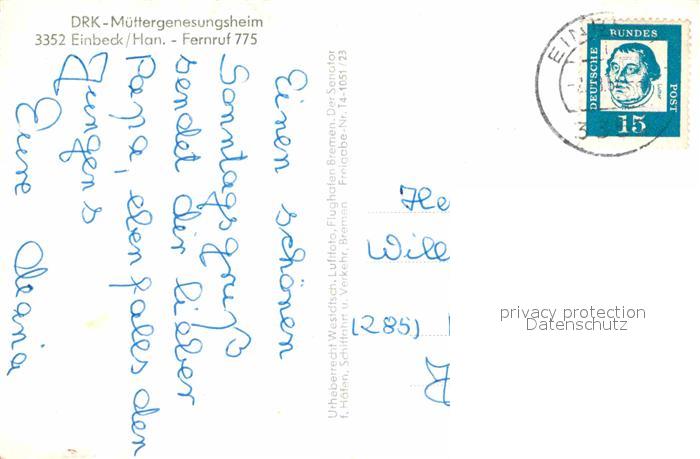 DRK-Müttergenesungsheim
3352 Einbeck/Han. - Fernruf 775
Einen schönen
Sonntagsgruß
sendet dir lieber
Papa, ebenfalls den
Jungens
Eure Maria
Urheberrecht Westdtsch. Luftfoto, Flughafen Bremen. Der Senator
f. Häfen, Schiffahrt u. Verkehr, Bremen Freigabe-Nr. T4-1051/23
EINB
3
DEUTSCHE
BUNDES
POST
15
He
Will
(285)
privacy protection
Datenschutz